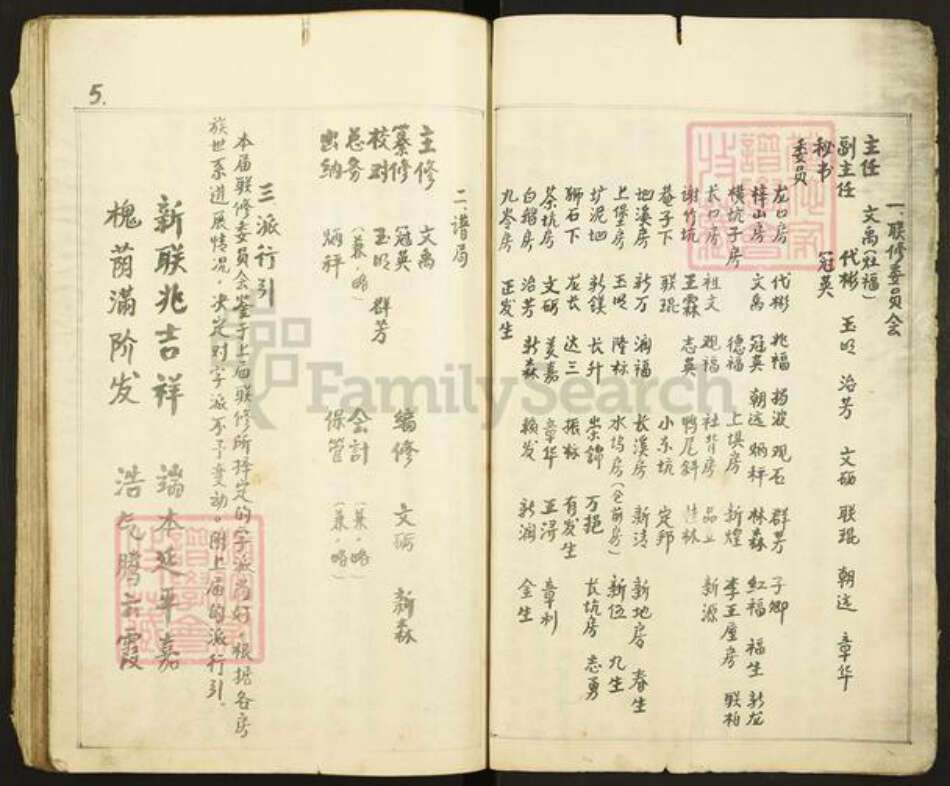 一、联修委员会
主任 文禹(社福)
副主任 代彬 玉明 治芳 文砺 联琨 朝远 章华
秘书 冠英
委员
龙口房 代彬 兆福 扬波 观石 群芳 子卿
梓山房 文禹 冠英 朝远 炳秤 林森 红福 福生 新龙
横坑子房 德福 上埧房 新煌 李王屋房 联柏
长口房 祖文 观福 社背房 新源
谢竹坑 玉霖 志英 鸭尾斜 桂林
菴子下 联琨 小东坑 定邦
地溪房 新万 润福 长溪房 新清 新地房 春生
上堡房 玉明 隆标 水坞房(仓前房) 新伍 九生
圹泥凹 新鎂 长升 崇錦 万挹 长坑房 志勇
狮石下 左长 达三 振标 有发生
茶坑房 文砺 美嘉 章华 玉浔 章利
白紹房 治芳 新森 赖发 新润 金生
九岺房 正发生
二、谱局
主修 文禹
纂修 冠英 编修 文砺 新森
校对 玉明 群芳
总务 (兼·略) 会计 (兼·略)
出纳 炳秤 保管 (兼·略)
三派行引
本届联修委员会鉴于上届联修所择定的字派尚好,根据各房
族世系进展情况,决定对字派不予变动。附上届的派行引。
新联兆吉祥 端本延平嘉
槐荫满阶发 浩气腾云霞
5.
FamilySearch